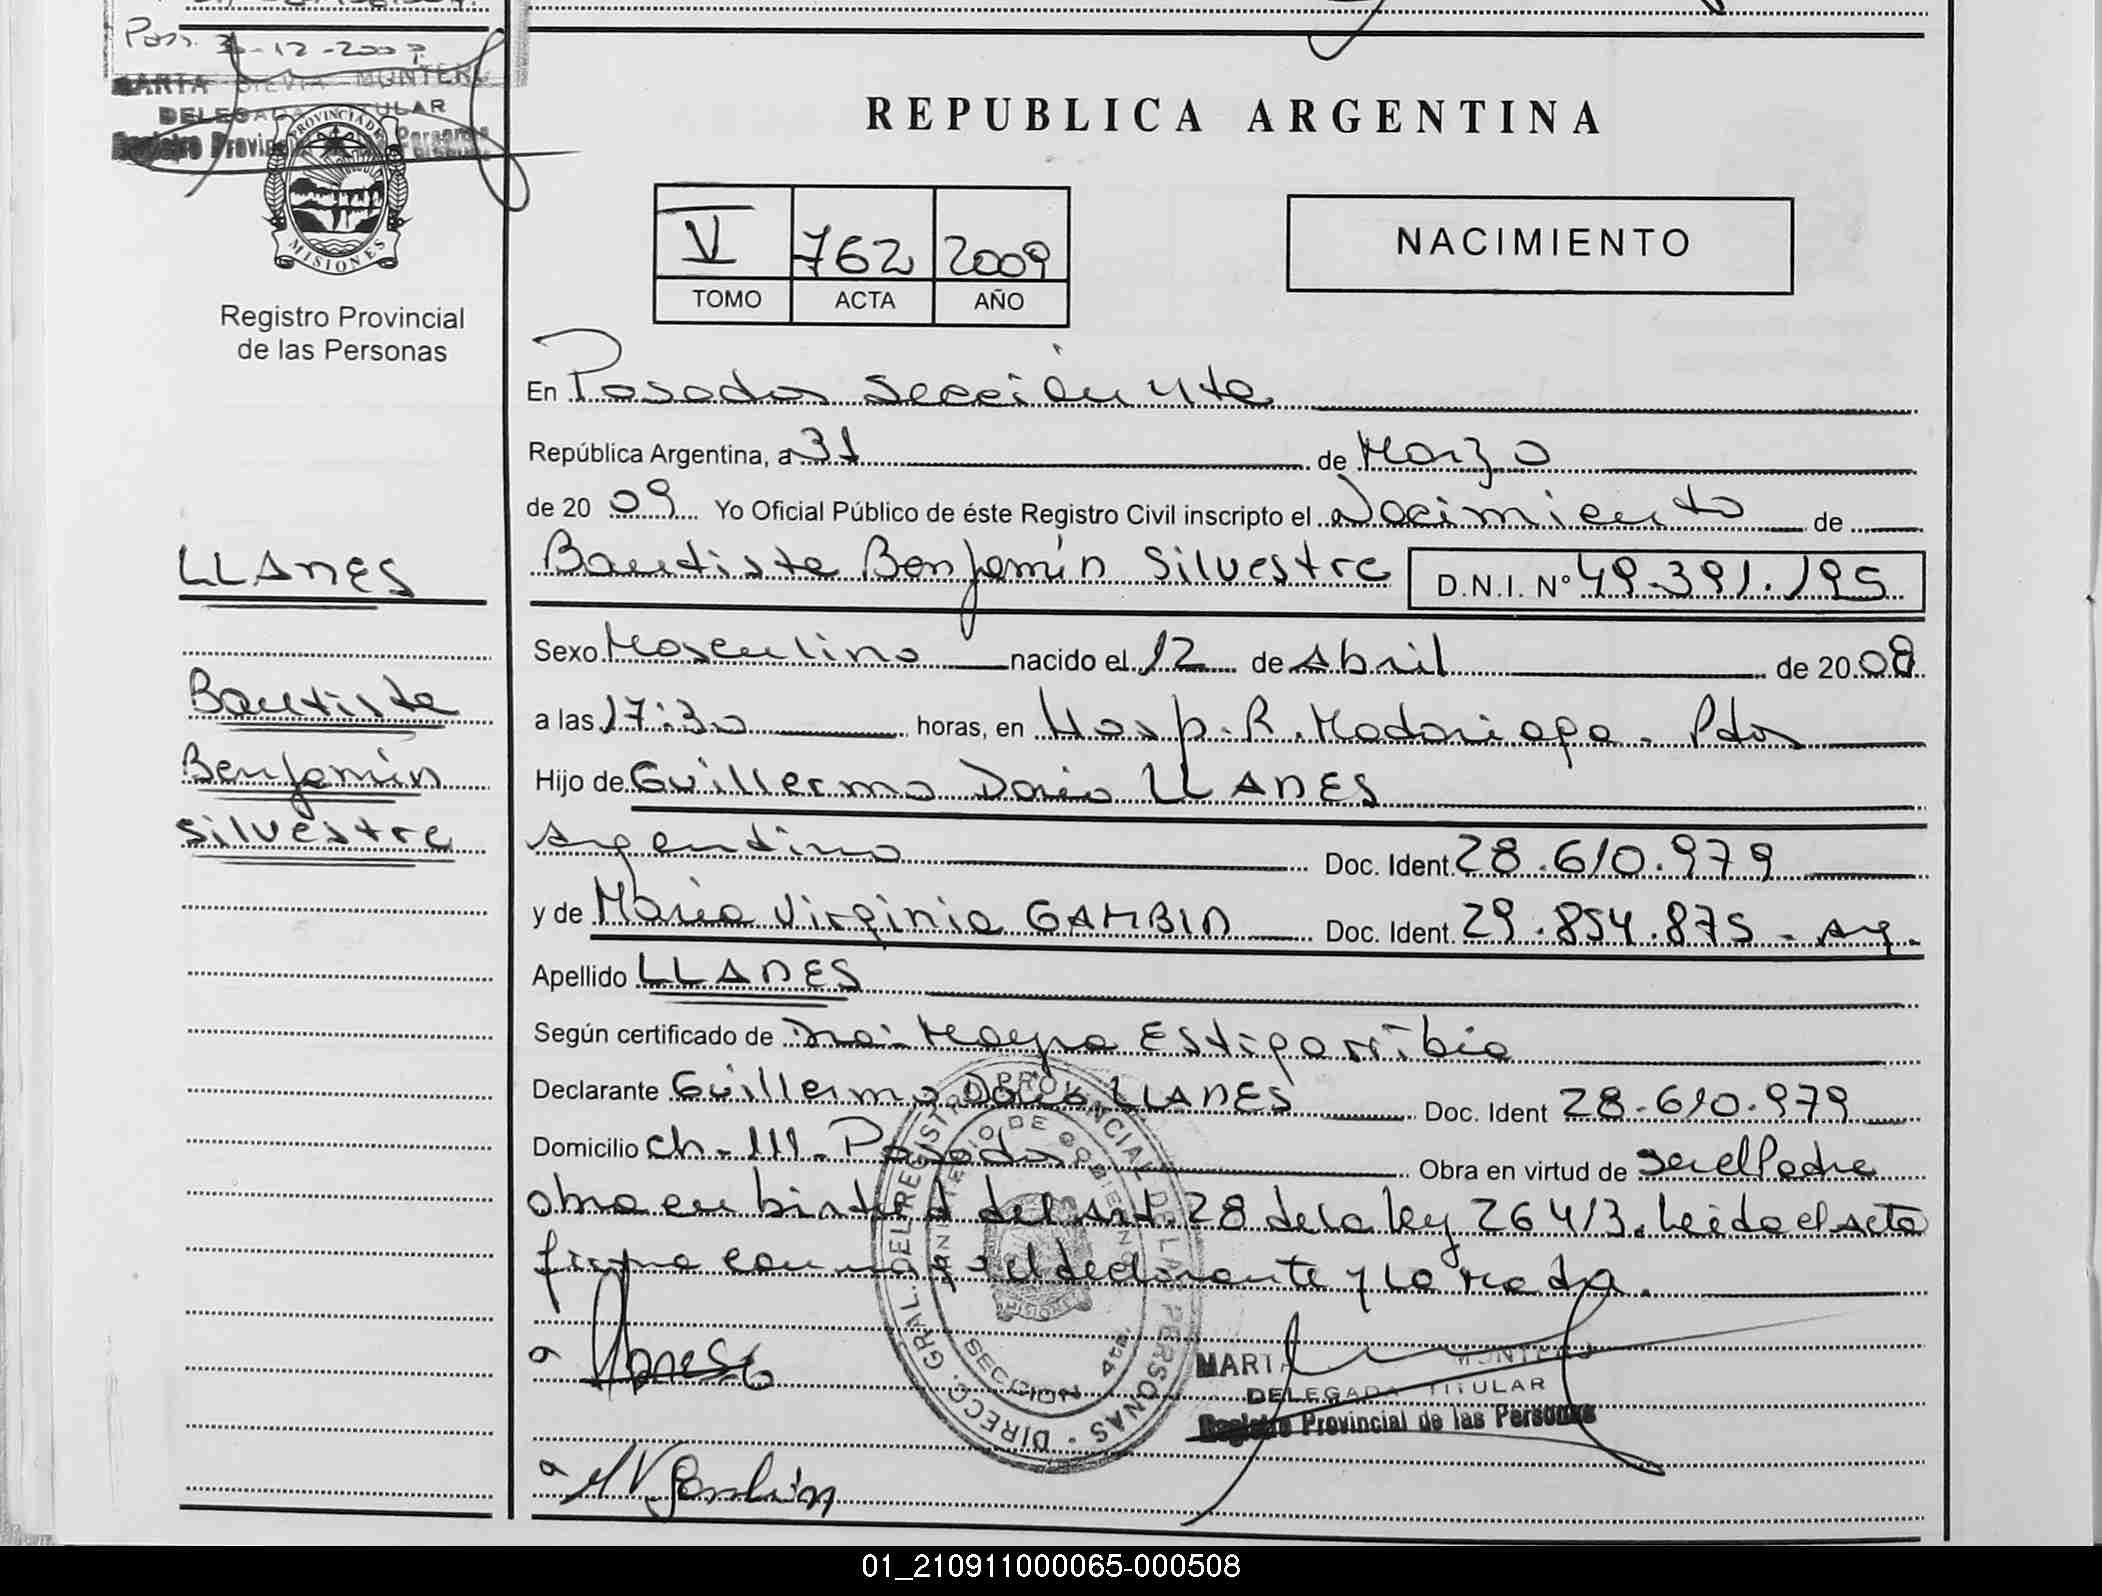 Pos. 31-12-2009
MARTA SILVIA MONTERO
DELEGADA TITULAR
Registro Provincial de las Personas
PROVINCIA DE
MISIONES
Registro Provincial
de las Personas
LLANES
Bautista
Benjamín
Silvestre
REPUBLICA ARGENTINA
V 762 2009
TOMO ACTA AÑO
NACIMIENTO
En Posadas Sección 4ta
República Argentina, a 31 de Marzo
de 2009 Yo Oficial Público de éste Registro Civil inscripto el Nacimiento de
Bautista Benjamín Silvestre D.N.I. Nº 49.391.195
Sexo Masculino nacido el 12 de Abril de 2008
a las 17:30 horas, en Hosp. R. Madariaga - Pdas
Hijo de Guillermo Dario LLANES
Argentino Doc. Ident. 28.610.979
y de María Virginia GAMBIN Doc. Ident. 29.854.875 - Arg.
Apellido LLANES
Según certificado de Dra. Mayra Estigarribia
Declarante Guillermo Dario LLANES Doc. Ident 28.610.979
Domicilio ch-111-Posadas Obra en virtud de ser el Padre
obra en birtud del Art. 28 de la ley 26413. Leída el Acta
firma conmigo el declarante y la madre.
DIRECC. GRAL. DEL REGISTRO PROVINCIAL DE LAS PERSONAS
MINISTERIO DE GOBIERNO
MISIONES
SECCION 4ta.
MARTA MONTERO
DELEGADA TITULAR
Registro Provincial de las Personas
MV Gambin
01_210911000065-000508